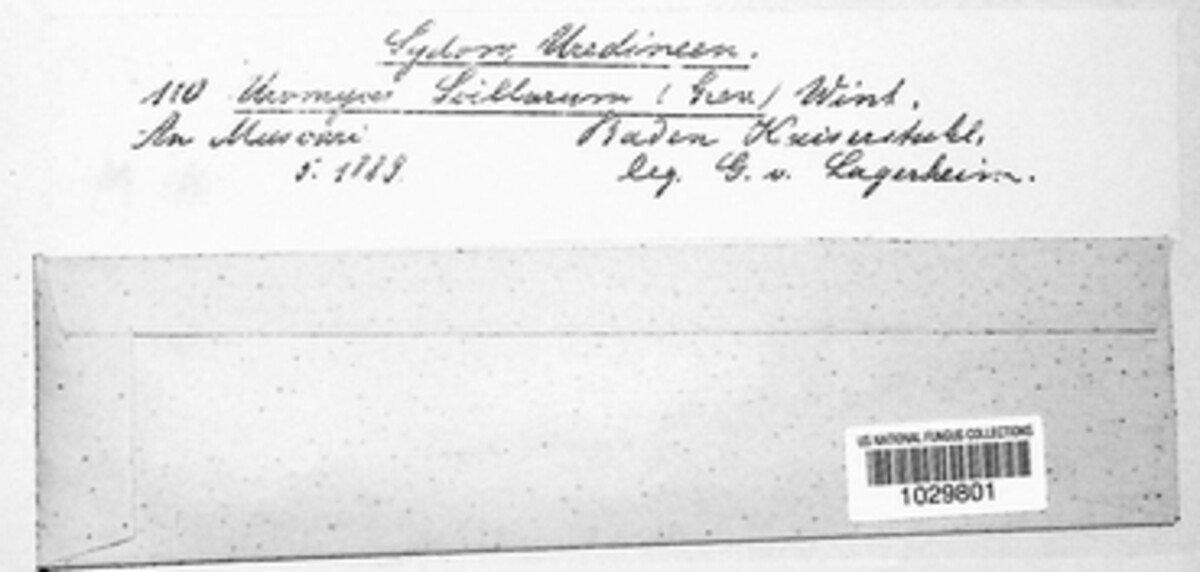 Sydow, Uredineen.
110 Uromyces Scillarum (Grev) Wint.
An Muscari Baden Kaiserstuhl.
5. 1889. leg. G. v. Lagerheim.
US NATIONAL FUNGUS COLLECTIONS
1029801